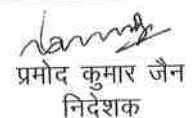 प्रमोद कुमार जैन
निदेशक